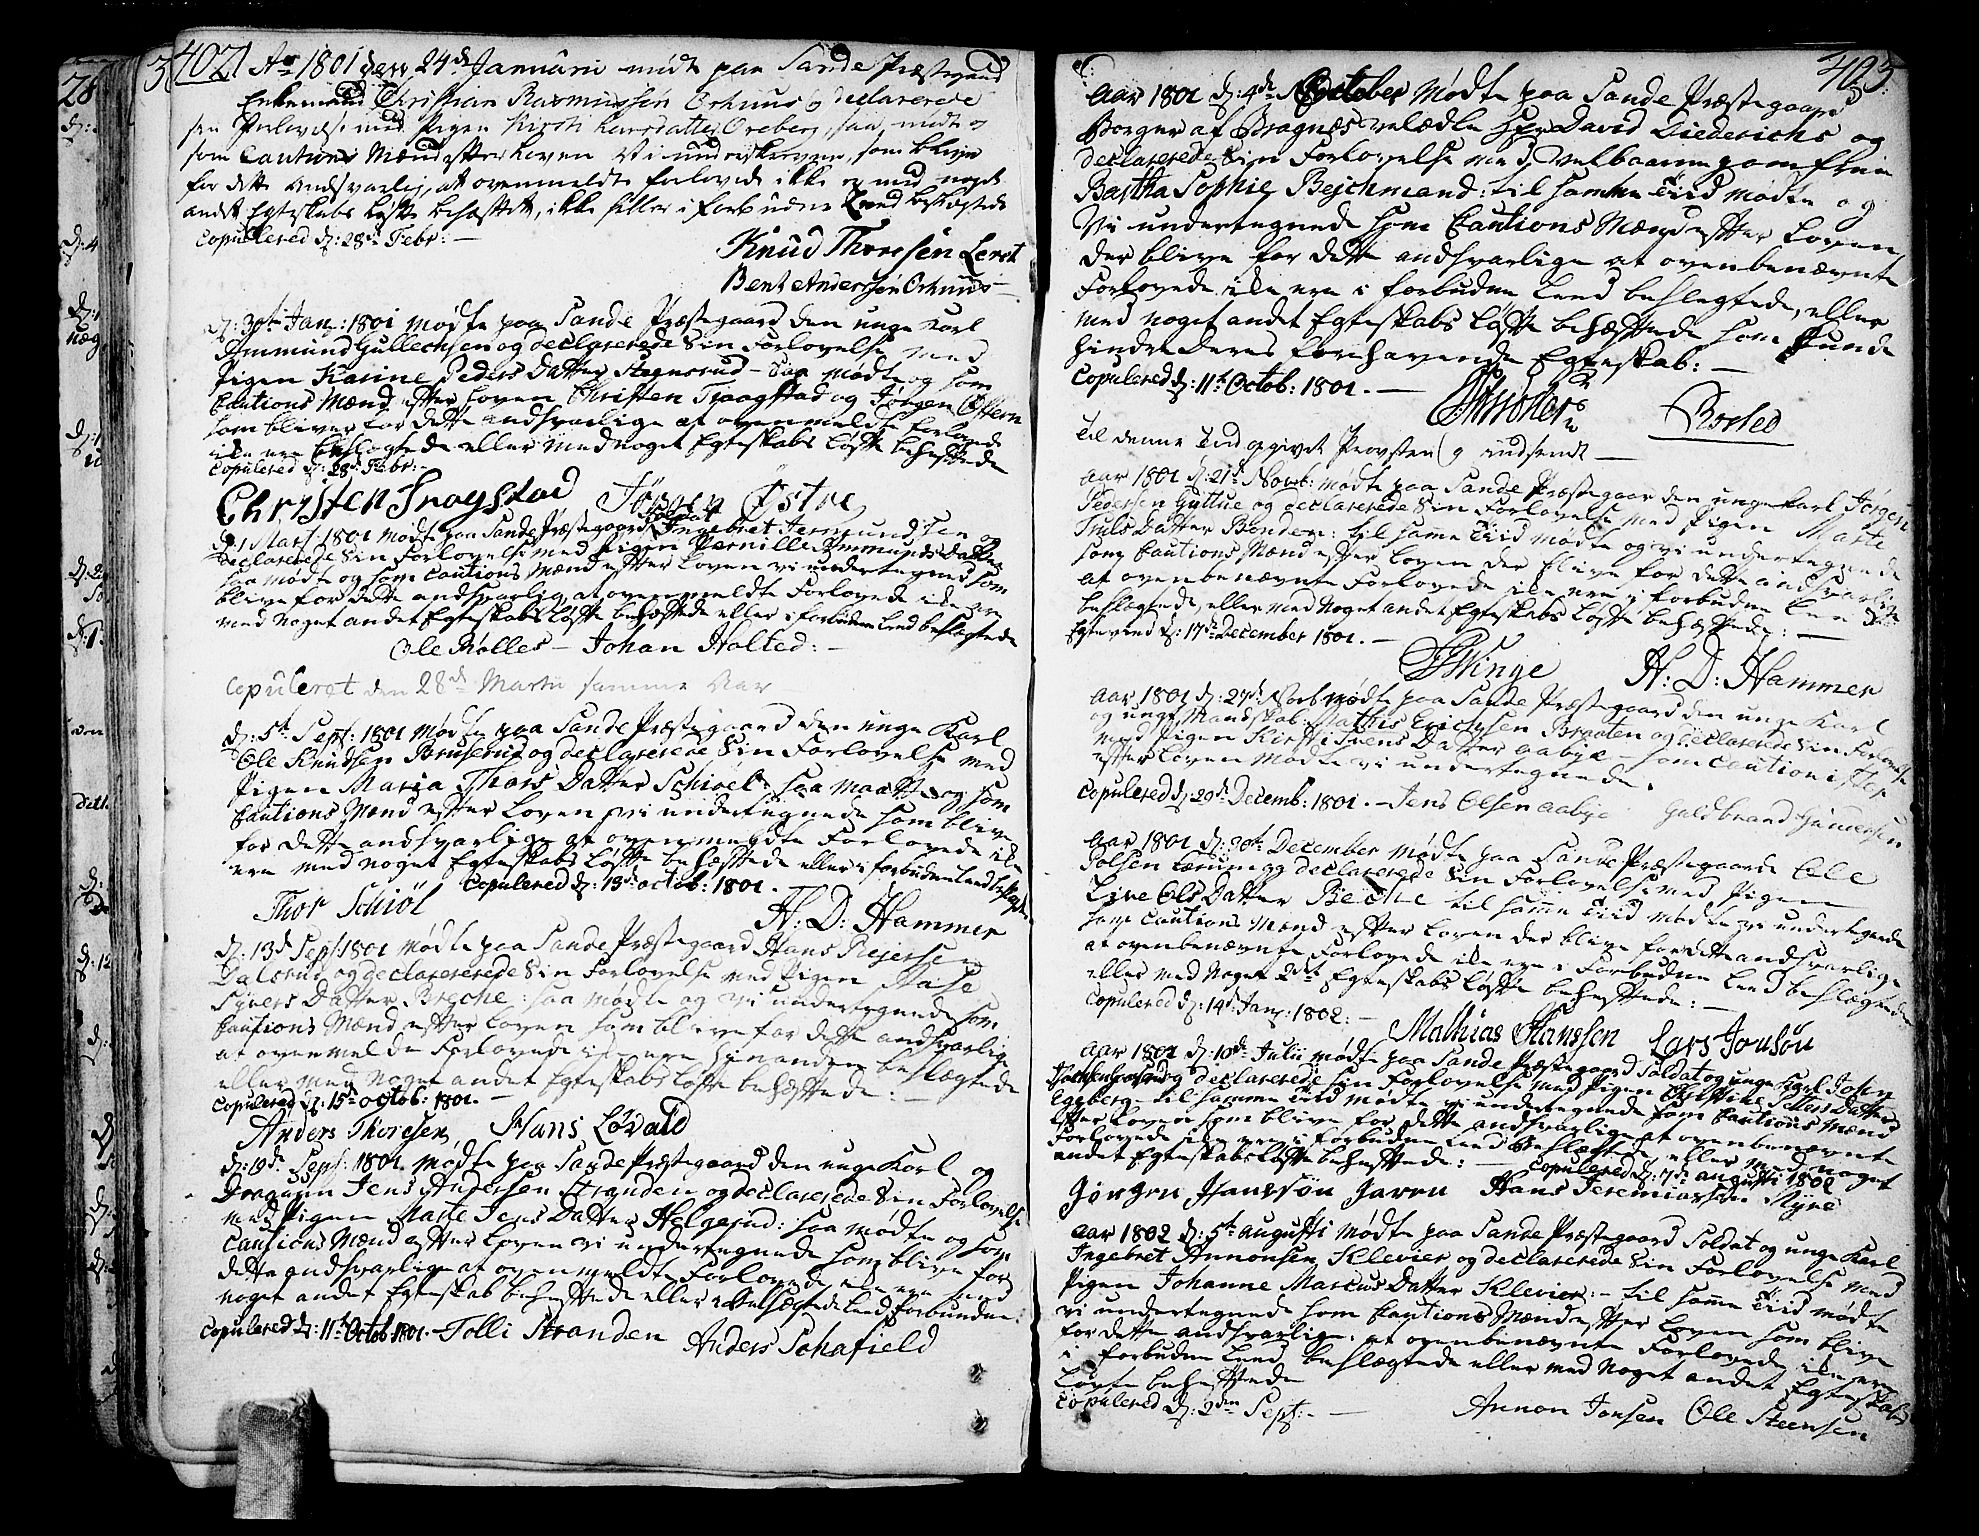 402
Ao 1801 den 24de Januarii mødte paa Sande Præstegaard
Enkemand Christian Rasmussen Orhuus og declarerede
sin Forlovelse med Pigen Kirsti Larsdatter Oreberg, saa mødte og
som Cautions Mænd efter Loven Vi underskrevne, som blive
for dette Andsvarlig, at ovenmeldte forlovede ikke er med noget
andet Egteskabs Løfte behæftet, ikke heller i forbudne Leed beslægtede
Copulered d: 28de Febr: —
Knud Thoresen Leret
Bent Anderssen Orhuus
d: 30te Jan: 1801 mødte paa Sande Præstegaard den unge Karl
Ammund Gullechsen og declarerede sin Forlovelse med
Pigen Karine Peders Datter — saa mødte og som
Cautions Mænd efter Loven Christen Traagstad og Jørgen Østern
som bliver for dette andsvarlige at ovenmeldte Forlovede
ikke ere beslægtede eller med noget Egteskabs Løfte behæftede
Copulered d: 28de Febr:
Christen Trogstad Jörgen Østre
d: 1 Mart: 1801 mødte paa Sande Præstegaard Soldat Ingebret Jermundsen og
declarerede sin Forlovelse med Pigen Pernille Ammunds Datter
saa mødte og som Cautions Mænd efter Loven vi undertegnede som
blive for dette andsvarlig, at ovenmeldte Forlovede ikke ere
med noget andet Egteskabs Løfte behæftede eller i forbuden Leed beslægtede
Ole Rølles — Johan Holted: —
Copuleret den 28de Martii samme Aar
d: 5te Sept: 1801 Mødte paa Sande Præstegaard den unge Karl
Ole Knudsen Bruserud og declarerede sin Forlovelse med
Pigen Maria Thors Datter Schiøel: saa mødte og som
Cautions Mænd efter Loven vi undertegnede som blive
for dette andsvarlige at ovenmeldte Forlovede ikke
ere med noget Egteskabs Løfte behæftede eller i forbuden Leed beslægtede
Copulered d: 18de Octob: 1801.
Thor Schiöl H: D: Hammer
d: 13de Sept: 1801 mødte paa Sande Præstegaard Hans Rejersen
Dalsrud og declarerede sin Forlovelse med Pigen Aase
Syvers Datter Breche: saa mødte og vi undertegnede som
Cautions Mænd efter Loven som blive for dette andsvarlige
at ovenmelde Forlovede ikke ere hinanden beslægtede
eller med noget andet Egteskabs Løfte behæftede: —
Copulered d: 15de Octob: 1801. —
Anders Thoresen, Hans Løvald
d: 19de Sept: 1801. Mødte paa Sande Præstegaard den unge Karl og
Dragun Jens Andersen Stranden og declarerede sin Forlovelse
med Pigen Marte Jens Datter Helgerud: saa mødte og som
Cautions Mænd efter Loven vi undertegnede som blive for
dette andsvarlige at ovenmeldte Forlovede ikke ere med
noget andet Egteskab behæftede eller Beslægtede Leed forbunden:
Copulered d: 11te Octob 1801. — Tolli Stranden Anders Schafield
403
Aar 1801 d: 4de October Mødte paa Sande Præstegaard
Borger af Bragnæs Velædle Hr David Diederichs og
declarerede Sin Forlovelse med Velbaarne Jomfrue
Bartha Sophie Bejchmand: til samme Tiid mødte og
Vi undertegnede som Cautions Mænd efter Loven
der blive for dette andsvarlige at ovenbenævnte
Forlovede ikke ere i forbuden Leed beslegtede, eller
med noget andet Egteskabs Løfte behæftede som kunde
hindre deres forehavende Egteskab: —
Copulered d: 11te Octob: 1801. —
Til denne Tiid opgivet Provsten og indsendt —
Aar 1801 d: 21de Novr: mødte paa Sande Præstegaar den unge Karl Jørgen
Pedersen Gyttue og declarerede Sin Forlovelse med Pigen Marte
Truls Datter Bonden: til samme Tiid mødte og vi undertegnede
som Cautions Mænd efter Loven der blive for dette andsvarlig
at ovenbenævnte Forlovede ikke ere i forbuden Leed
beslægtede, eller med Noget andet Egteskabs Løfte behæftede: —
Egteviend d: 17de December 1801. —
Winge H: D: Hammer
Aar 1801 d: 27de Novb mødte paa Sande Præstegaard den unge Karl
og ungt Mandskab: Mathis Erichsen Braaten og declarerede Sin Forlovelse
med Pigen Kirsti Svens Datter Aabye — som Cautionister
efter Loven mødte vi undertegnede.
Copulered d: 29de Decemb: 1801. — Jens Olsen Aabye Guldbrand Gunersen
Aar 1801 d: 30te December mødte paa Sande Præstegaard Ole
Tolsen Lerum og declarerede Sin Forlovelse med Pigen
Live Ols Datter Beche til samme Tiid mødte vi undertegnede
som Cautions Mænd efter Loven der blive for dette andsvarlige
at ovenbenævnte Forlovede ikke ere i Forbuden Leed beslægtede
eller med Noget andet Egteskabs Løfte behæftede: —
Copulered d: 14de Jan: 1802: —
Mathias Hanssen Lars Jonsön
Aar 1802 d: 10de Julii mødte paa Sande Præstegaard Soldat og unge Karl John
og declarerede sin Forlovelse med Pigen Datter
Egeberg — til samme Tiid mødte vi undertegnede som Cautions Mænd
efter Loven som blive for dette andsvarlige at ovenbenævnte
Forlovede ikke ere i forbuden Leed Beslægtede, eller med noget
andet Egteskabs Løfte behæftede: — Copulered d: 7de Augusti 1802
Jørgen Hanssön Haven Hans Jeremiassen Myre
Aar 1802 d: 5te Augusti mødte paa Sande Præstegaard Soldat og unge Karl
Ingebret Annonsen Klevier og declarerede Sin Forlovelse med
Pigen Johanne Marcus Datter Klevier: — til samme Tiid mødte
vi undertegnede som Cautions Mænd efter Loven som blive
for dette andsvarlige: at ovenbenævnte Forlovede ikke ere
i forbuden Leed beslægtede eller med Noget andet Egteskabs
Løfte behæftede
Copulered d: 2den Sept: —
Annon Jonsen Ole Steensen